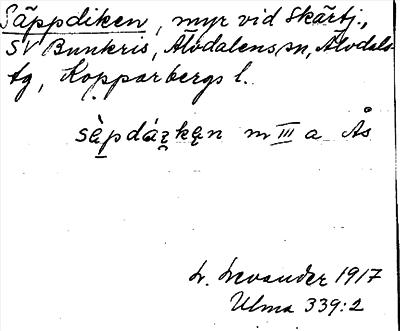 Säppdiken, myr vid Skärtj.,
SV Bunkris, Älvdalens sn, Älvdals
tg, Kopparbergs l.
sèpdázkęn m III a Ås
L. Levander 1917
Ulma 339:2